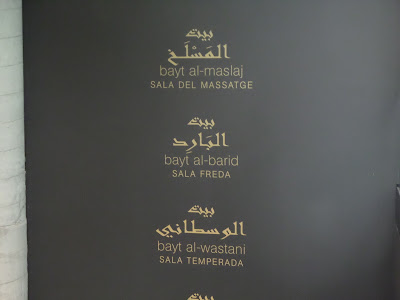 بيت
المَسْلَخ
bayt al-maslaj
SALA DEL MASSATGE
بيت
البَارِد
bayt al-barid
SALA FREDA
بيت
الوسطاني
bayt al-wastani
SALA TEMPERADA
بيت